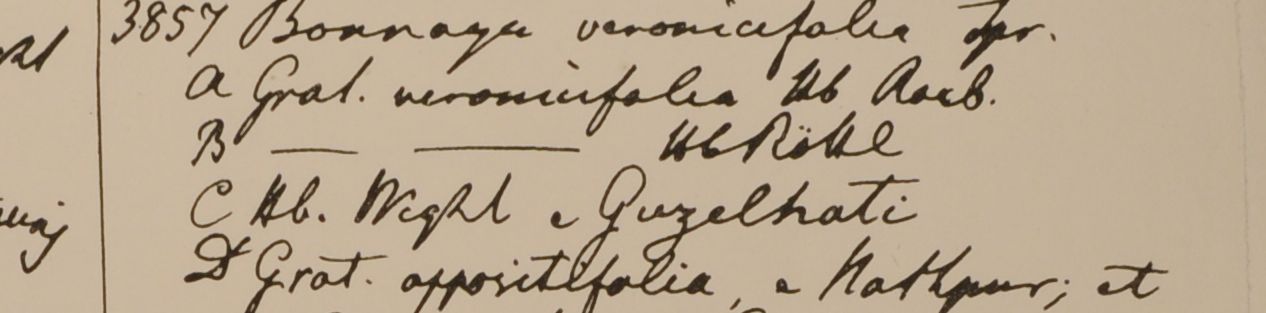 3857 Bonnaya veronicifolia Spr.
A Grat. veronicifolia Hb Roxb.
B — — Hb Röttl
C Hb. Wight e Guzelhati
D Grat. oppositifolia, e Nathpur; et